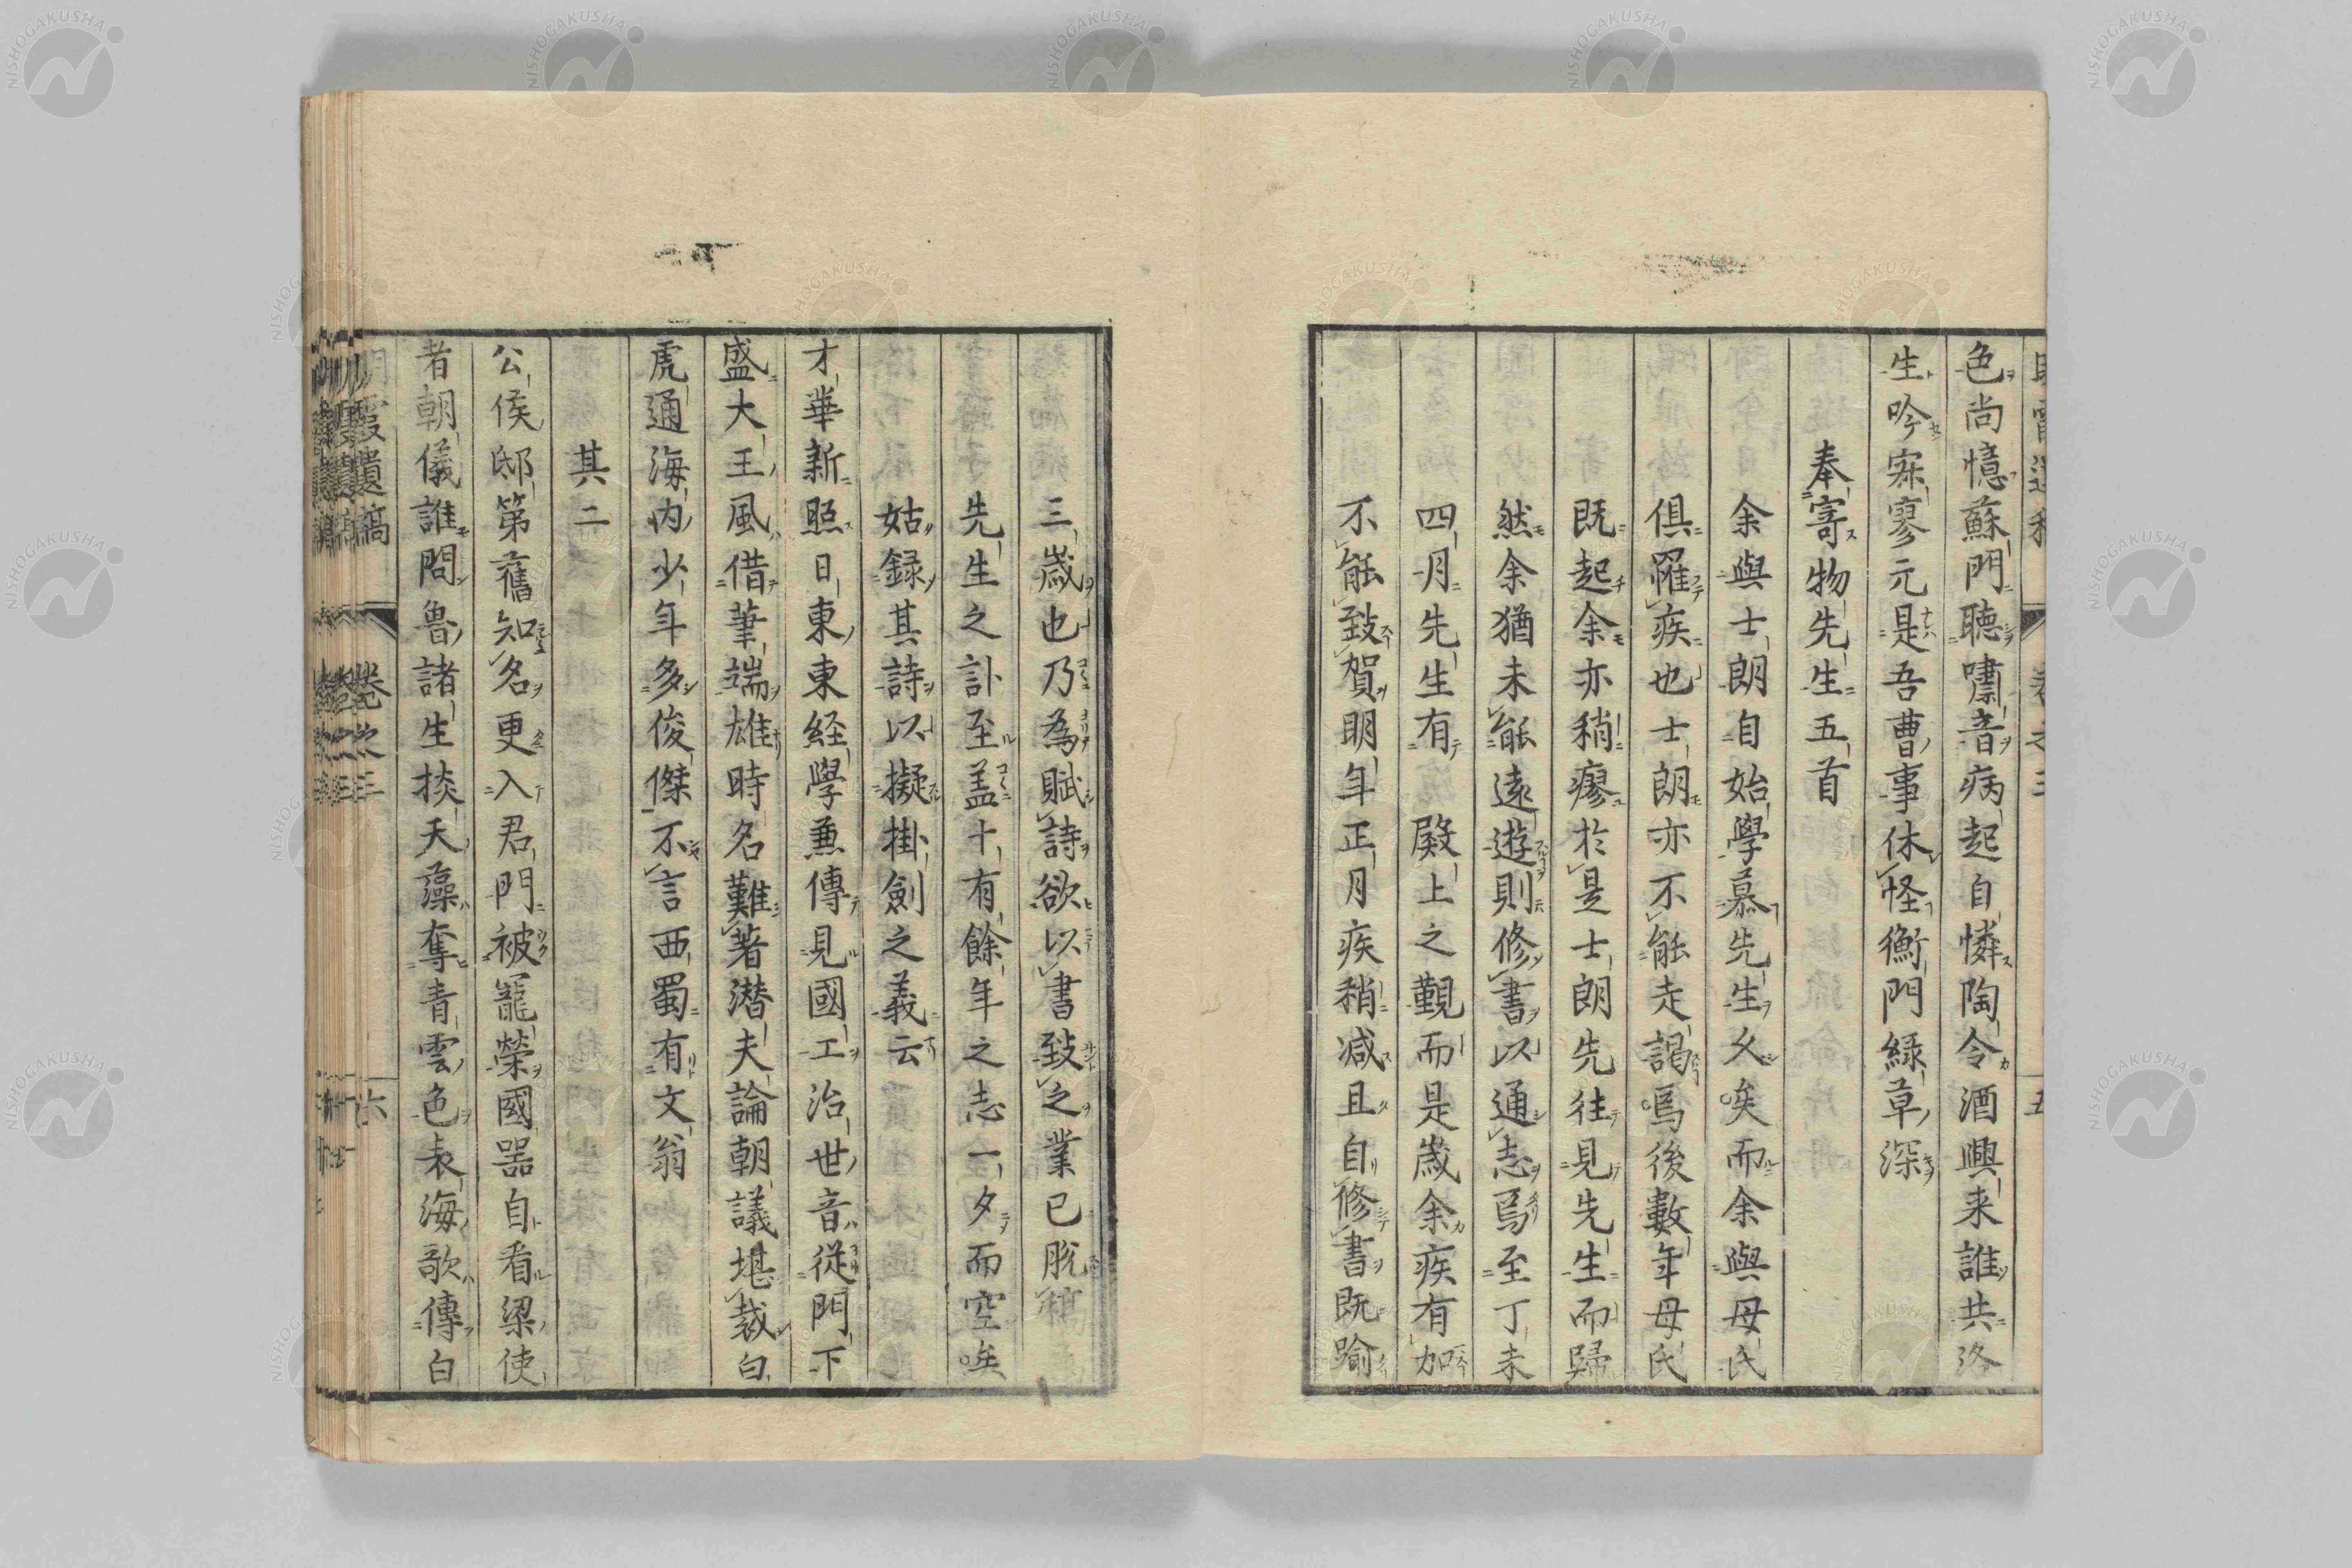 色尚憶蘇門聽嘯音病起自憐陶令酒興来誰共洛
生吟寐寥元是吾曹事休怪衡門綠草深
奉寄物先生五首
余與士朗自始學慕先生久矣而余與母氏
俱罹疾也士朗亦不能走謁焉後數年母氏
既起余亦稍瘳於是士朗先往見先生而歸
然余猶未能遠遊則修書以通志焉至丁未
四月先生有 殿上之觀而是歲余疾有加
不能致賀明年正月疾稍减且自修書既踰
三歲也乃為賦詩欲以書致之業已脫稿
先生之訃至盖十有餘年之志一夕而空矣
姑録其詩以擬掛劍之義云
才華新照日東東経學兼傳見國工治世音從門下
盛大王風借筆端雄時名難著潜夫論朝議堪裁白
虎通海内少年多俊傑不言西蜀有文翁
其二
公侯邸第舊知名更入君門被寵榮國器自看梁使
者朝儀誰問魯諸生掞天藻奪青雲色表海歌傳白
霞遺稿 卷之三 六
NISHOGAKUSHA